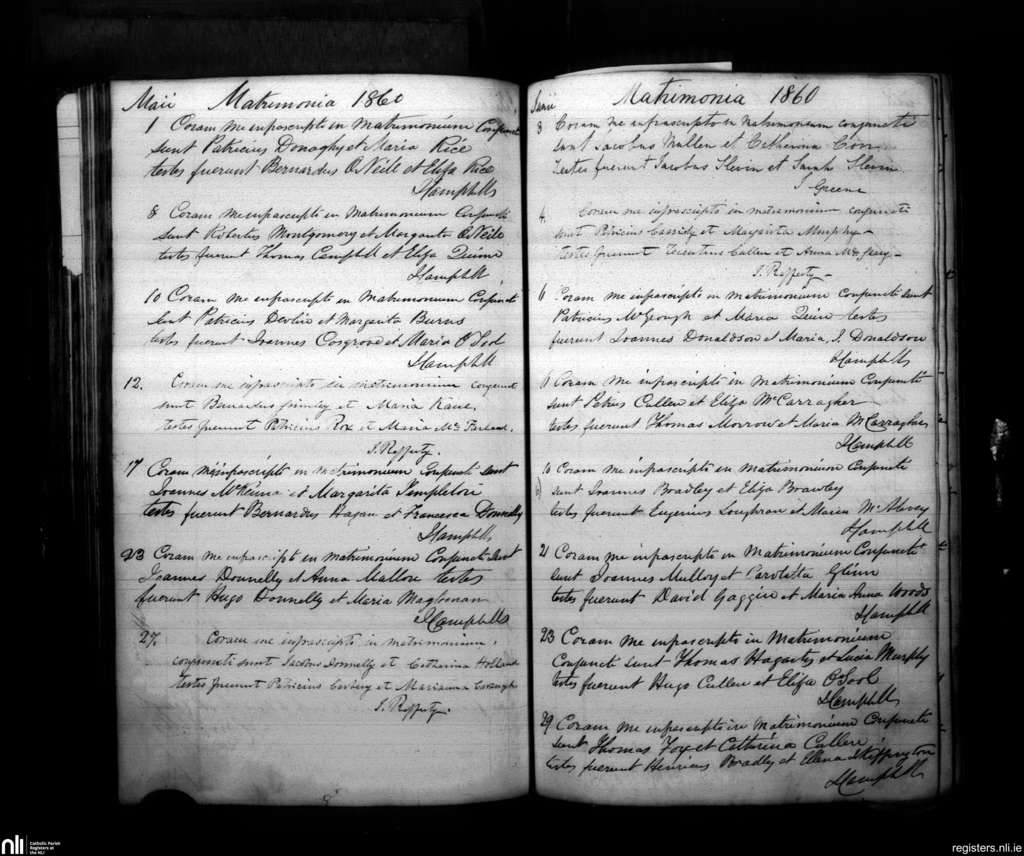 Maii Matrimonia 1860
1 Coram me infrascripto in Matrimonium Conjuncti
sunt Patricius Donaghy et Maria Rice
testes fuerunt Bernardus O'Neill et Eliza Rice
8 Coram me infrascripto in Matrimonium Conjuncti
sunt Robertus Montgomery et Margarita O'Neile
testes fuerunt Thomas Campbell et Eliza Quinn
10 Coram me infrascripto in Matrimonium Conjuncti
sunt Patricius Devlin et Margarita Burns
testes fuerunt Joannes Cosgrove et Maria O'Tool
12. Coram me infrascripto in matrimonium conjuncti
sunt Bernardus et Maria Kane,
testes fuerunt Patricius Rox et Maria McFarland.
J. Rafferty.
17 Coram me infrascripto in matrimonium Conjuncti sunt
Joannes McKenna et Margarita Templeton
testes fuerunt Bernardus Hagan et Francesca Donnelly
23 Coram me infrascripto in matrimonium Conjuncti sunt
Joannes Donnelly et Anna Mallon testes
fuerunt Hugo Donnelly et Maria
27. Coram me infrascripto in matrimonium,
conjuncti sunt Jacobus Donnelly et Catherina Holland
testes fuerunt Patricius et Marianna
J. Rafferty.
Junii Matrimonia 1860
3 Coram me infrascripto in Matrimonium conjuncti
sunt Jacobus Mullen et Catherina Corr
testes fuerunt Jacobus Slevin et Sarah Slevin
J Greene
4. Coram me infrascripto in matrimonium conjuncti
sunt Patricius Cassidy et Margarita Murphy
testes fuerunt Cullen et Anna
J. Rafferty
6 Coram me infrascripto in matrimonium Conjuncti sunt
Patricius McGeough et Maria Quin testes
fuerunt Joannes Donaldson et Maria J. Donaldson
6 Coram me infrascripto in matrimonium Conjuncti
sunt Petrus Cullen et Eliza McCarragher
testes fuerunt Thomas Morrow et Maria McCarragher
10 Coram me infrascripto in Matrimonium Conjuncti
sunt Joannes Bradley et Eliza Brawley
testes fuerunt Eugenius Loughran et Maria
21 Coram me infrascripto in Matrimonium Conjuncti
sunt Joannes Mulloy et Carolotta Glinn
testes fuerunt David Gaggin et Maria Anna Woods
23 Coram me infrascripto in Matrimonium
Conjuncti sunt Thomas Hagarty et Lucia Murphy
testes fuerunt Hugo Cullen et Eliza O'Tool
29 Coram me infrascripto in Matrimonium Conjuncti
sunt Thomas Fox et Catharina Cullen
testes fuerunt Henricus Bradley et Ellena
nli
Catholic Parish
Registers at
the NLI
registers.nli.ie